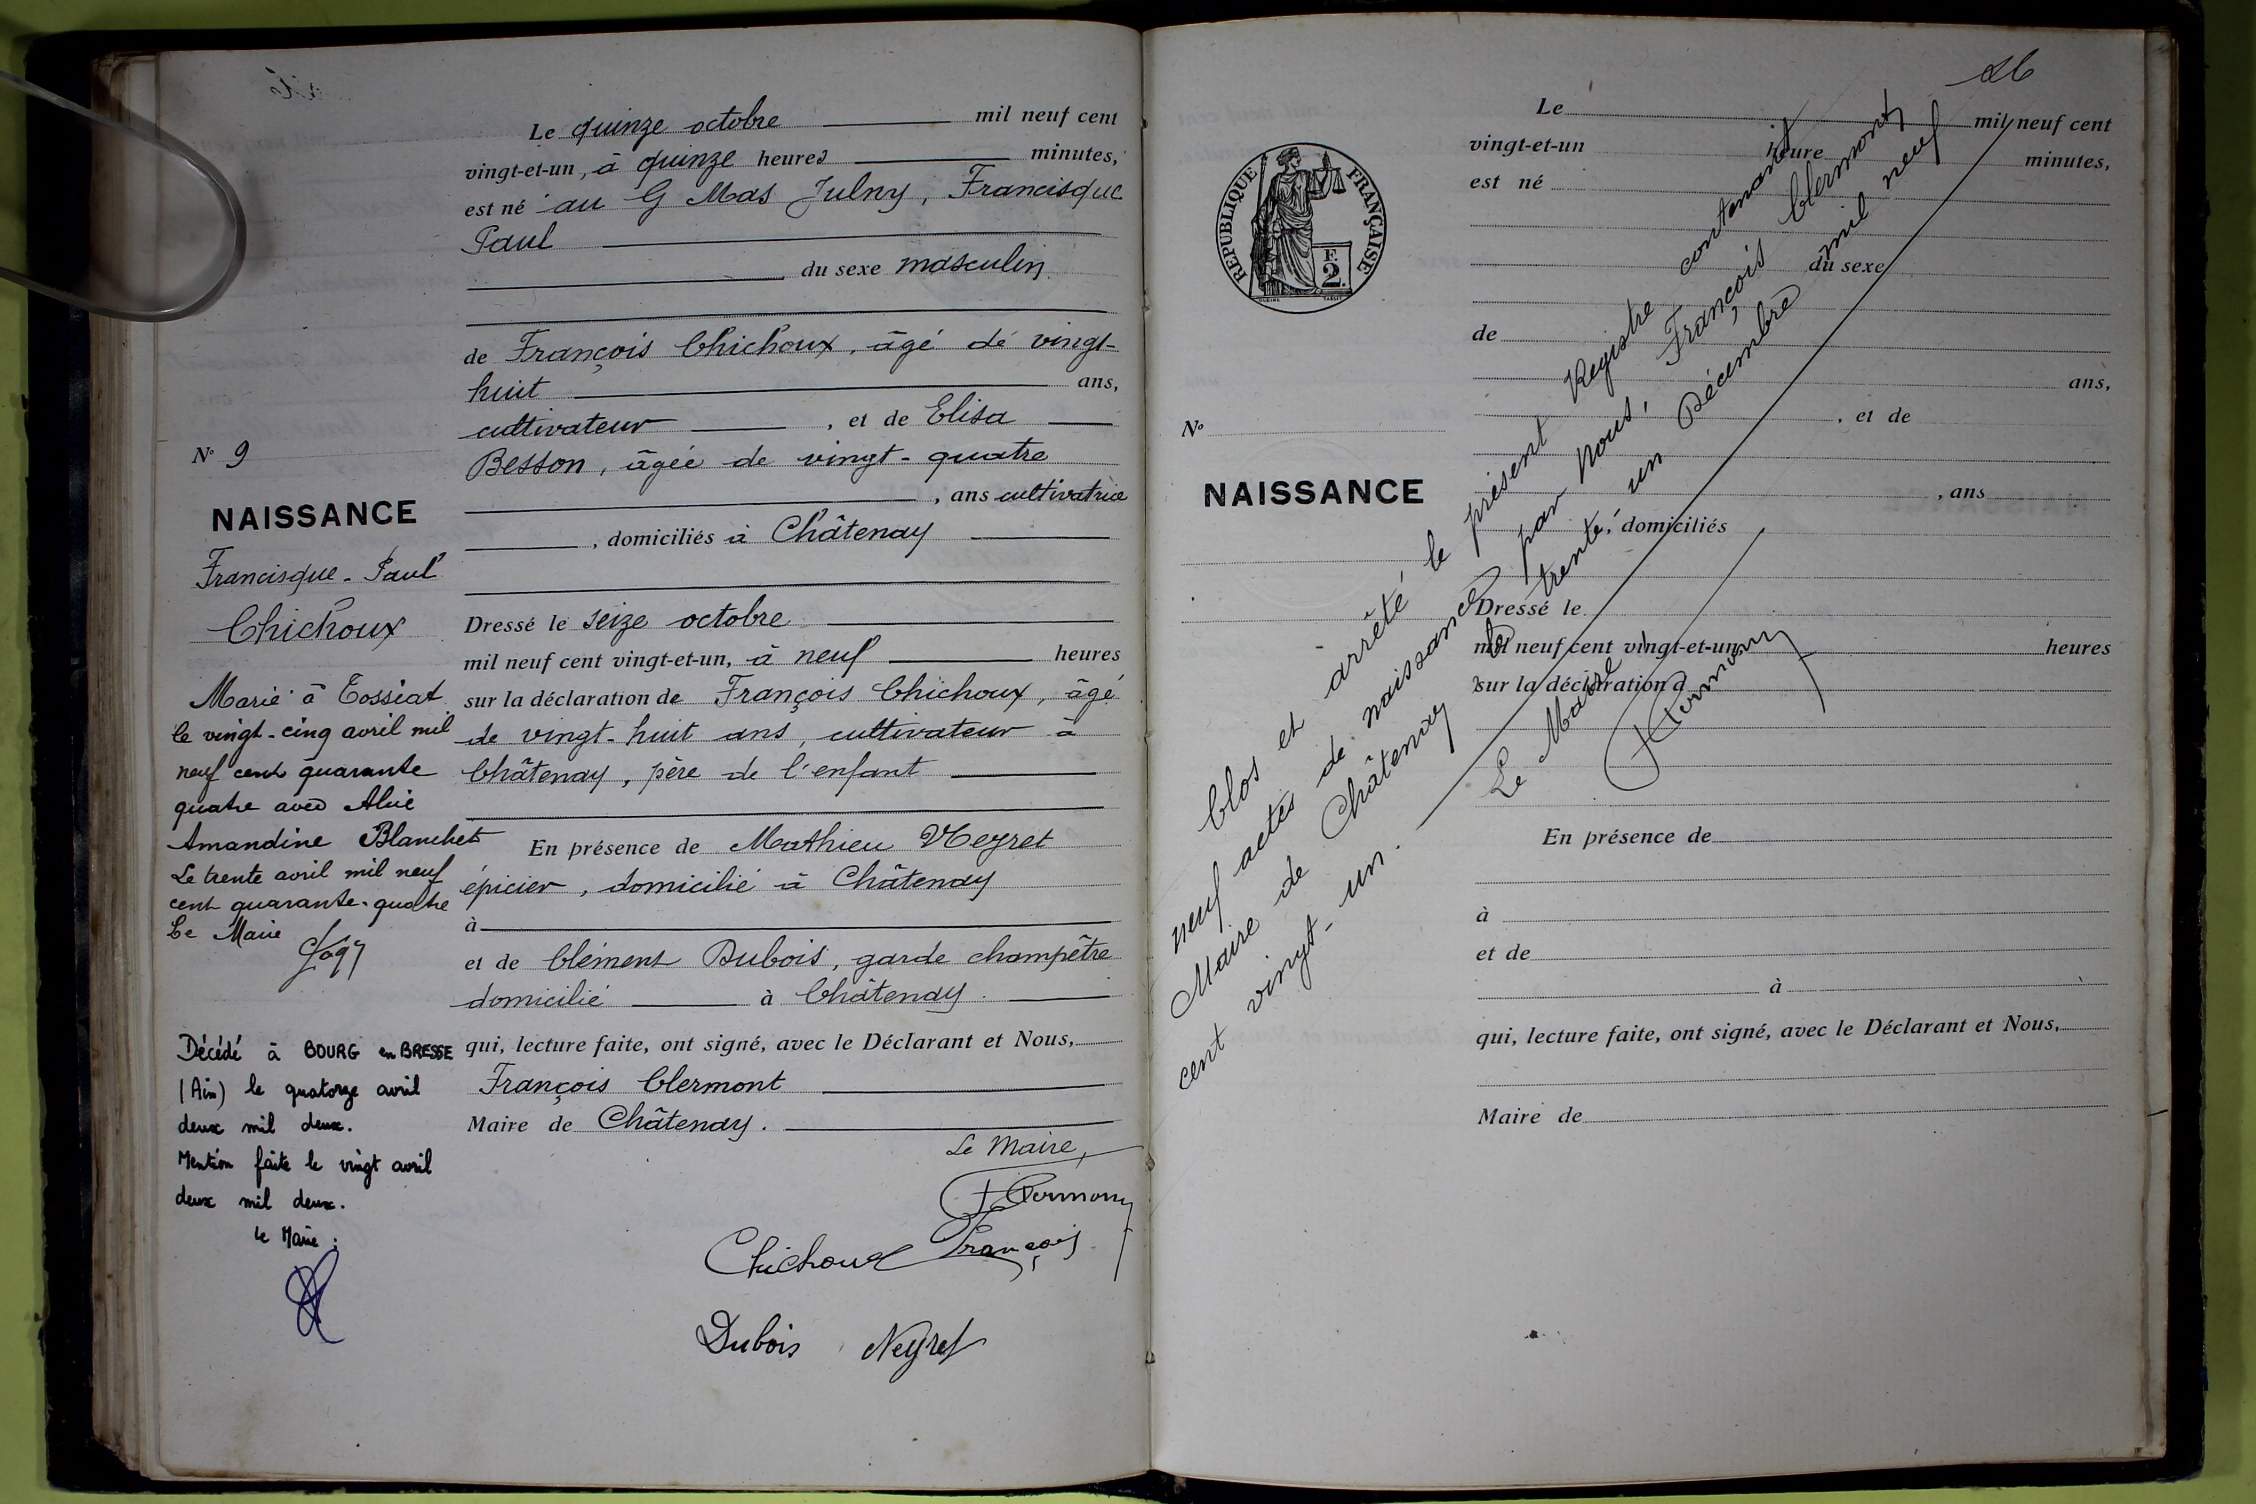 Le quinze octobre mil neuf cent
vingt-et-un, à quinze heures minutes,
est né au G Mas Julny, Francisque
Paul
du sexe masculin
de François Chichoux, âgé de vingt-
huit ans,
cultivateur , et de Elisa
Besson, âgée de vingt-quatre
, ans cultivatrice
, domiciliés à Châtenay
Dressé le seize octobre
mil neuf cent vingt-et-un, à neuf heures
sur la déclaration de François Chichoux, âgé
de vingt-huit ans, cultivateur à
Châtenay, père de l'enfant
En présence de Mathieu Neyret
épicier, domicilié à Châtenay
à
et de Clément Dubois, garde champêtre
domicilié à Châtenay.
qui, lecture faite, ont signé, avec le Déclarant et Nous,
François Clermont
Maire de Châtenay.
Le Maire,
F Clermont
Chichoux François
Dubois Neyret
N° 9
NAISSANCE
Francisque-Paul
Chichoux
Marié à Tossiat
le vingt-cinq avril mil
neuf cent quarante
quatre avec Alice
Amandine Blanchet
Le trente avril mil neuf
cent quarante-quatre
Le Maire
Décédé à BOURG en BRESSE
(Ain) le quatorze avril
deux mil deux.
Mention faite le vingt avril
deux mil deux.
le Maire :
26
REPUBLIQUE FRANÇAISE
F.
2.
N°
NAISSANCE
Le mil neuf cent
vingt-et-un heure minutes,
est né
du sexe
de
ans,
, et de
, ans
, domiciliés
Dressé le
mil neuf cent vingt-et-un, heures
sur la déclaration d
En présence de
à
et de
à
qui, lecture faite, ont signé, avec le Déclarant et Nous,
Maire de
Clos et arrêté le présent Registre contenant
neuf actes de naissance par nous, François Clermont
Maire de Châtenay le trente un Décembre mil neuf
cent vingt-un.
Le Maire
F Clermont